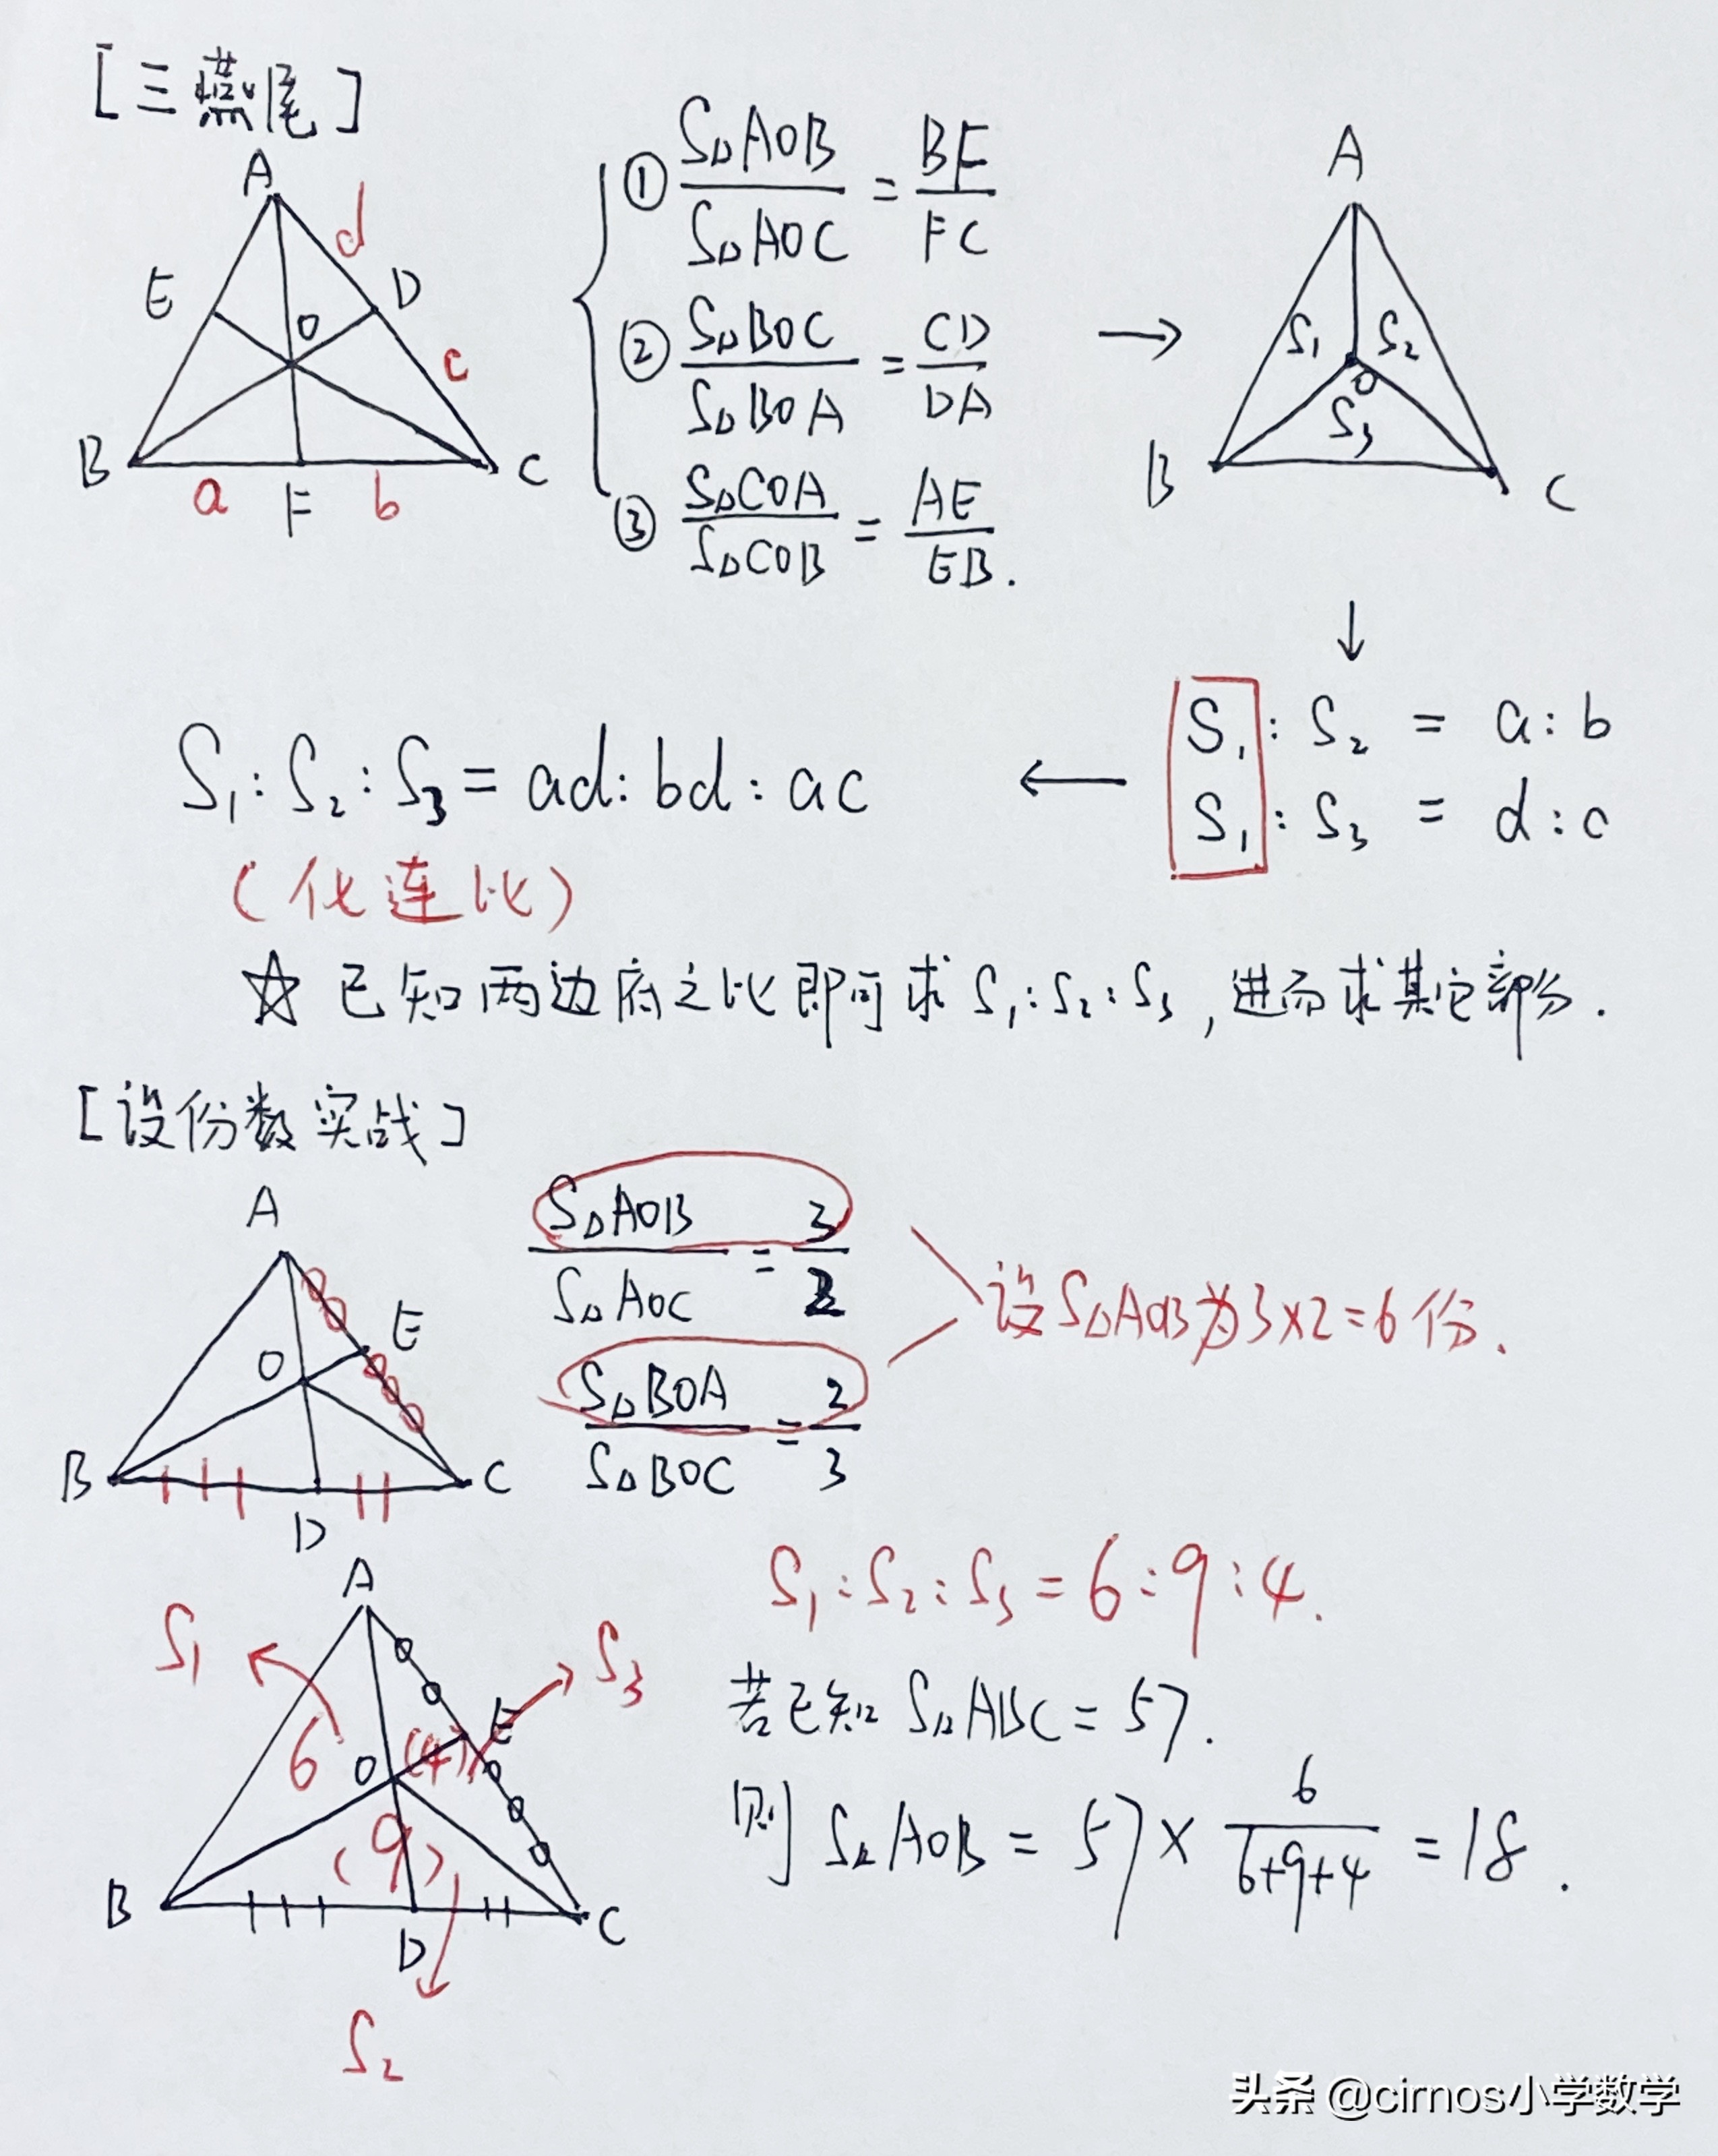 [三燕尾]
A
d
E
D
O
c
B
a
F
b
C
① S△AOB / S△AOC = BF / FC
② S△BOC / S△BOA = CD / DA
③ S△COA / S△COB = AE / EB.
→
A
S₁ S₂
O
S₃
B
C
↓
S₁ : S₂ = a : b
S₁ : S₃ = d : c
←
S₁ : S₂ : S₃ = ad : bd : ac
(化连比)
☆ 已知两边府之比即可求 S₁:S₂:S₃, 进而求其它部分.
[设份数实战]
A
E
O
B
C
D
S△AOB / S△AOC = 3 / 2
S△BOA / S△BOC = 2 / 3
设S△AOB为3×2=6份.
S₁ : S₂ : S₃ = 6 : 9 : 4.
A
S₁
S₃
E
6
O
(4)
(9)
B
C
D
S₂
若已知 S△ABC = 57.
则 S△AOB = 57 × 6 / 6+9+4 = 18.
头条 @cirnos小学数学